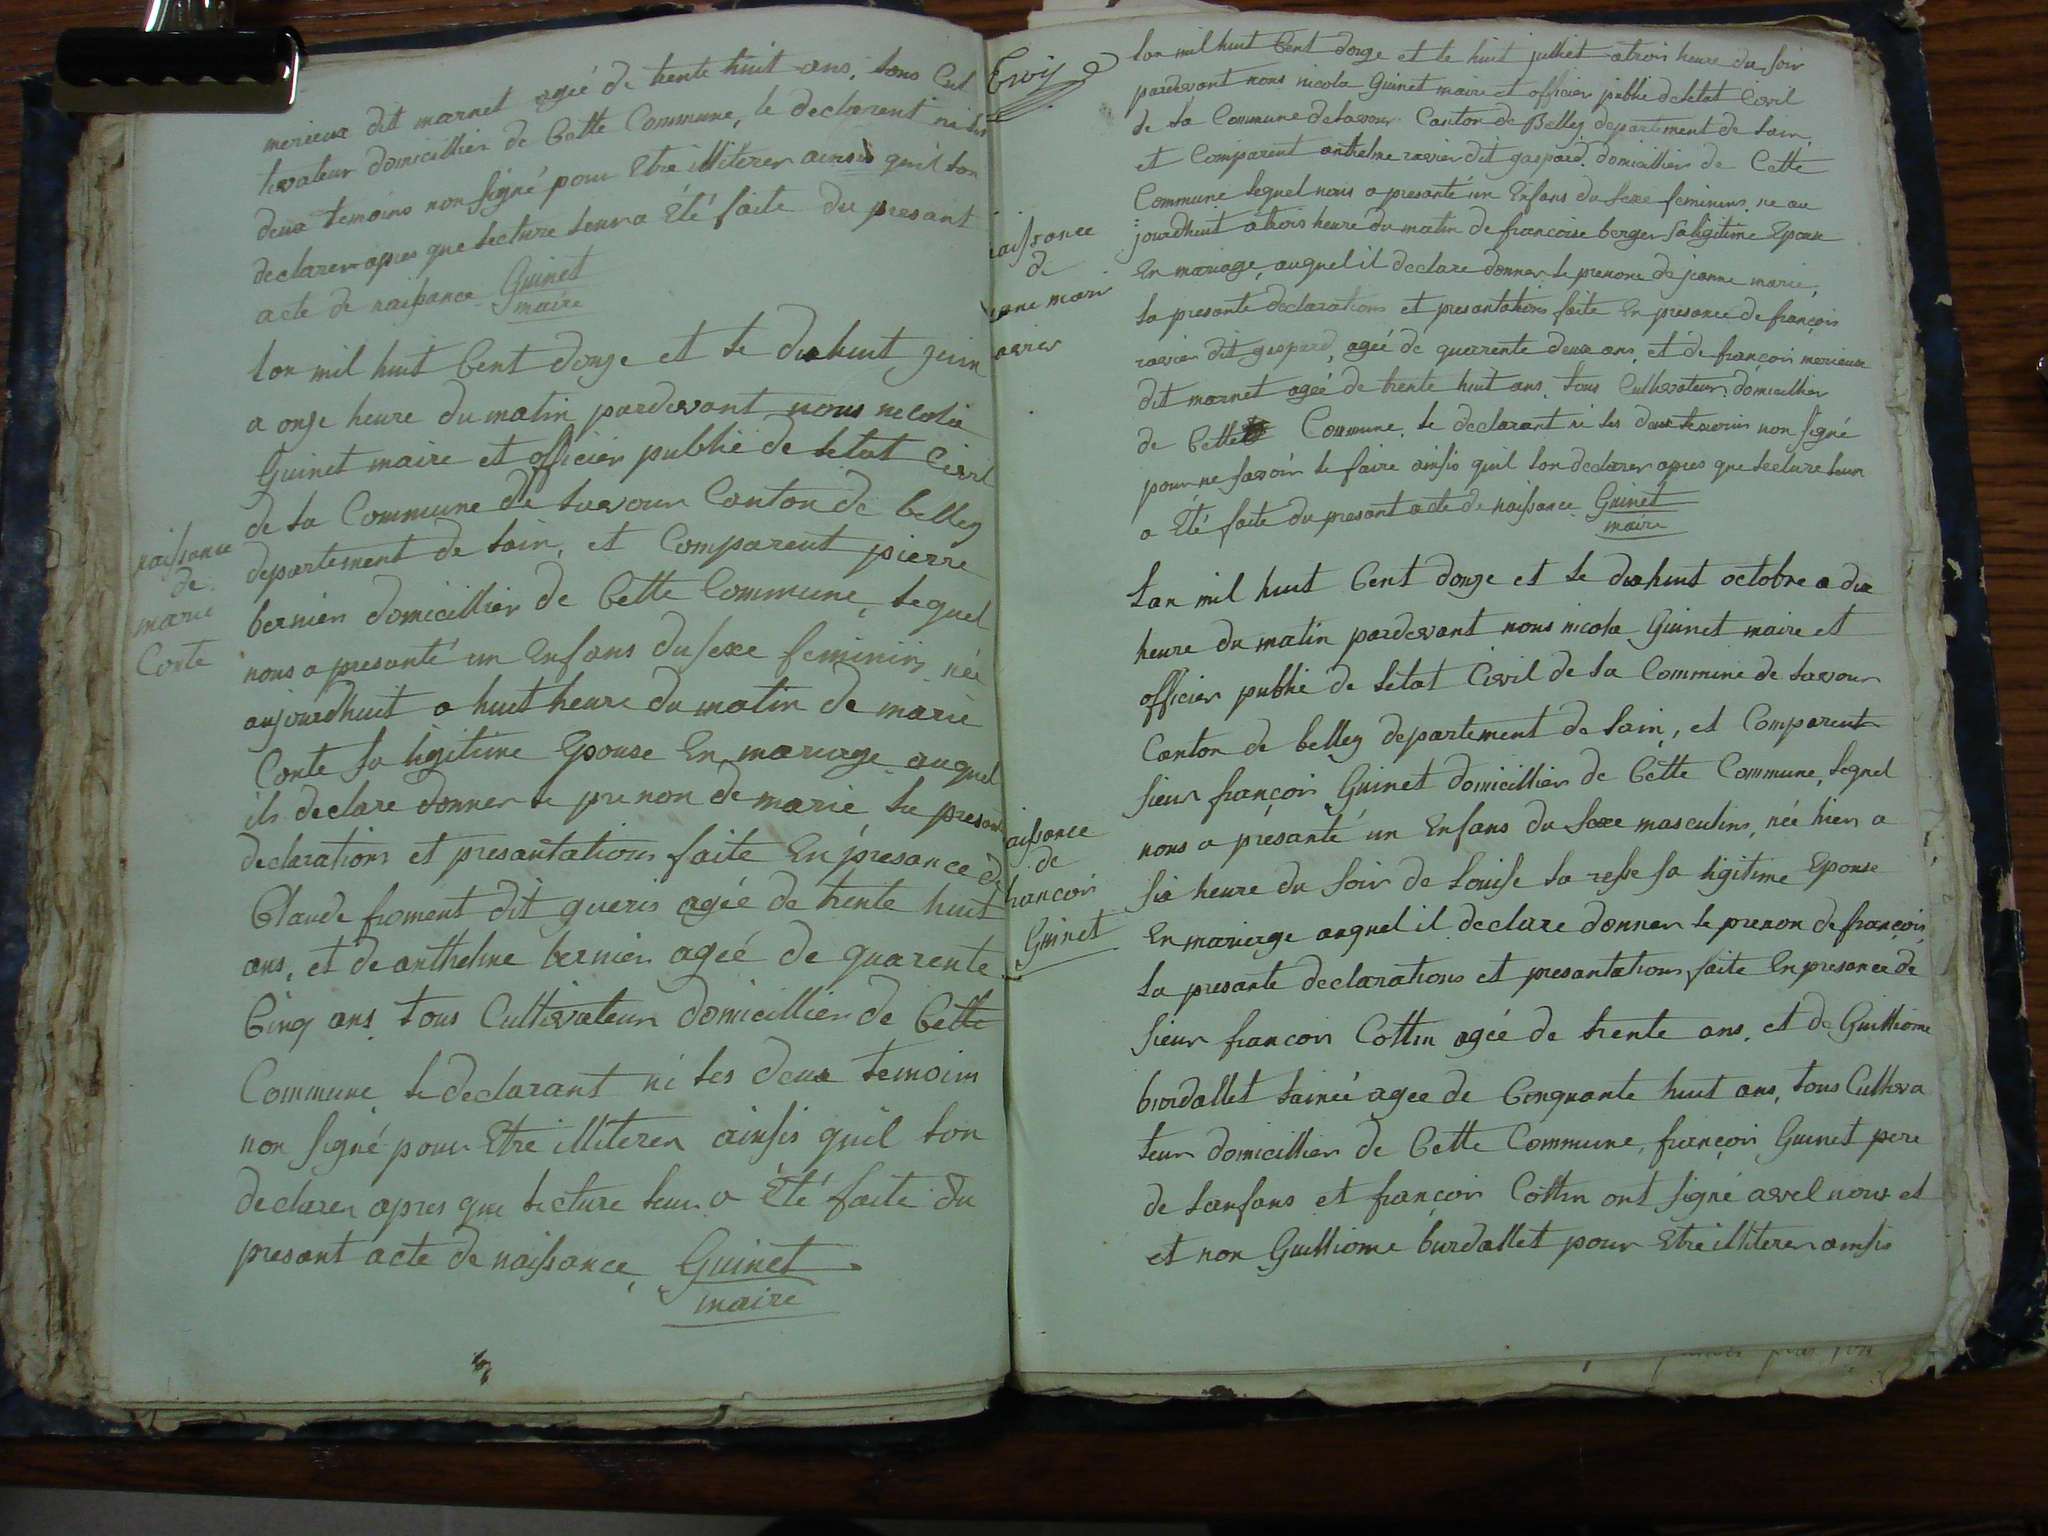 merieux dit marnet agée de trente huit ans, tous Cul
tivateur domicillier de Cette Commune, le declarent ni les
deux temoins non signé pour Etre illiterer ainsis quil lon
declarer apres que lecture leur a Eté faite du presant
acte de naissance Guinet
maire
lan mil huit Cent douze et le dixhuit juin
a onze heure du matin pardevant nous nicolas
Guinet maire et officier publie de letat Civil
de la Commune de lavour Canton de belley
departement de lain, et Comparent pierre
bernier domicillier de Cette Commune, lequel
nous a presanté un Enfans du sexe feminin née
aujourdhuit a huit heure du matin de marie
Conte sa ligitime Epouse En mariage auquel
ils declare donner le prenon de marie, la presant
declarations et presantations faite En presance de
Claude froment dit gueris agée de trente huit
ans, et de anthelme bernier agéé de quarente
Cinq ans tous Cultivateur domicillier de Cette
Commune le declarant ni les deux temoins
non signé pour Etre illiterer ainsis quil lon
declarer apres que lecture leur a Eté faite du
presant acte de naissance Guinet
maire
naissance
de
marie
Conte
lan mil huit Cent douze et le huit julliet a troix heure du soir
pardevant nous nicola Guinet maire et officier publie de letat Civil
de la Commune de lavour Canton de Belley departement de lain,
et Comparent anthelme ravier dit gaspard, domicillier de Cette
Commune lequel nous a presanté un Enfans du sexe feminins ne au
jourdhuit a trois heure du matin de francoise berger sa ligitime Epouse
En mariage, auquel il declare donner le prenone de jeanne marie,
la presante declarations et presantations faite En presance de françois
ravier dit gaspard, agéé de quarente deux ans, et de françois merieux
dit marnet agéé de trente huit ans, tous Cultivateur domicillier
de Cette Commune, le declarant ni les deux temoins non signé
pour ne savoir le faire ainsis quil lon declarer apres que lecture leur
a Eté faite du presant acte de naissance Guinet
maire
aissance
de
anne mari
avier
lan mil huit Cent douze et le dixhuit octobre a dix
heure du matin pardevant nous nicola Guinet maire et
officier publie de letat Civil de la Commune de lavour
Canton de belley departement de lain, et Comparent
sieur françois Guinet domicillier de Cette Commune, lequel
nous a présanté un Enfans du sexe masculins, née hier a
six heure du soir de Louise la resse sa ligitime Epouse
En mariage auquel il declare donner le prenon de françois,
la presante declarations et presantations faite En presance de
sieur francois Cottin agéé de trente ans, et de Guilliome
burdallet lainéé agee de Cinquante huit ans, tous Cultiva
teur domicillier de Cette Commune, françois Guinet pere
de lanfans et françois Cottin ont signé avel nous et
et non Guilliome burdallet pour Etre illiterer ainsis
aissance
de
francois
Guinet